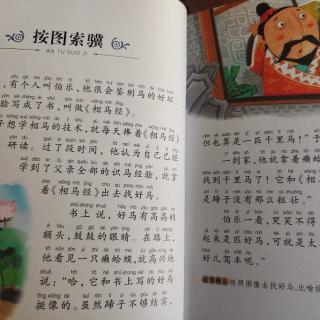 按图索骥
AN TU SUO JI
有个人叫伯乐，他很会鉴别马的好坏，
验写成了书，叫做《相马经》。
子想学相马的技术，就每天捧着《相马经》
研读。过了段时间，他认为自己已经
学到了父亲全部的识马经验，就拿
《相马经》出去找好马。
书上说，好马有高高的
额头，鼓鼓的眼睛。在路上，
他看见一只癞蛤蟆，就高兴地
说：“哈，它和书上写的好马
挺像的。虽然蹄子不够结实，
但也算是一匹千里马！”于
一到家，他就拿着癞蛤
找到千里马了！它和《相
是蹄子没有那么粗壮。”
伯乐一看，哭笑不得
起来是匹好马，可就是太
好儿驾车呢。”
按照图像去找好马。比喻按